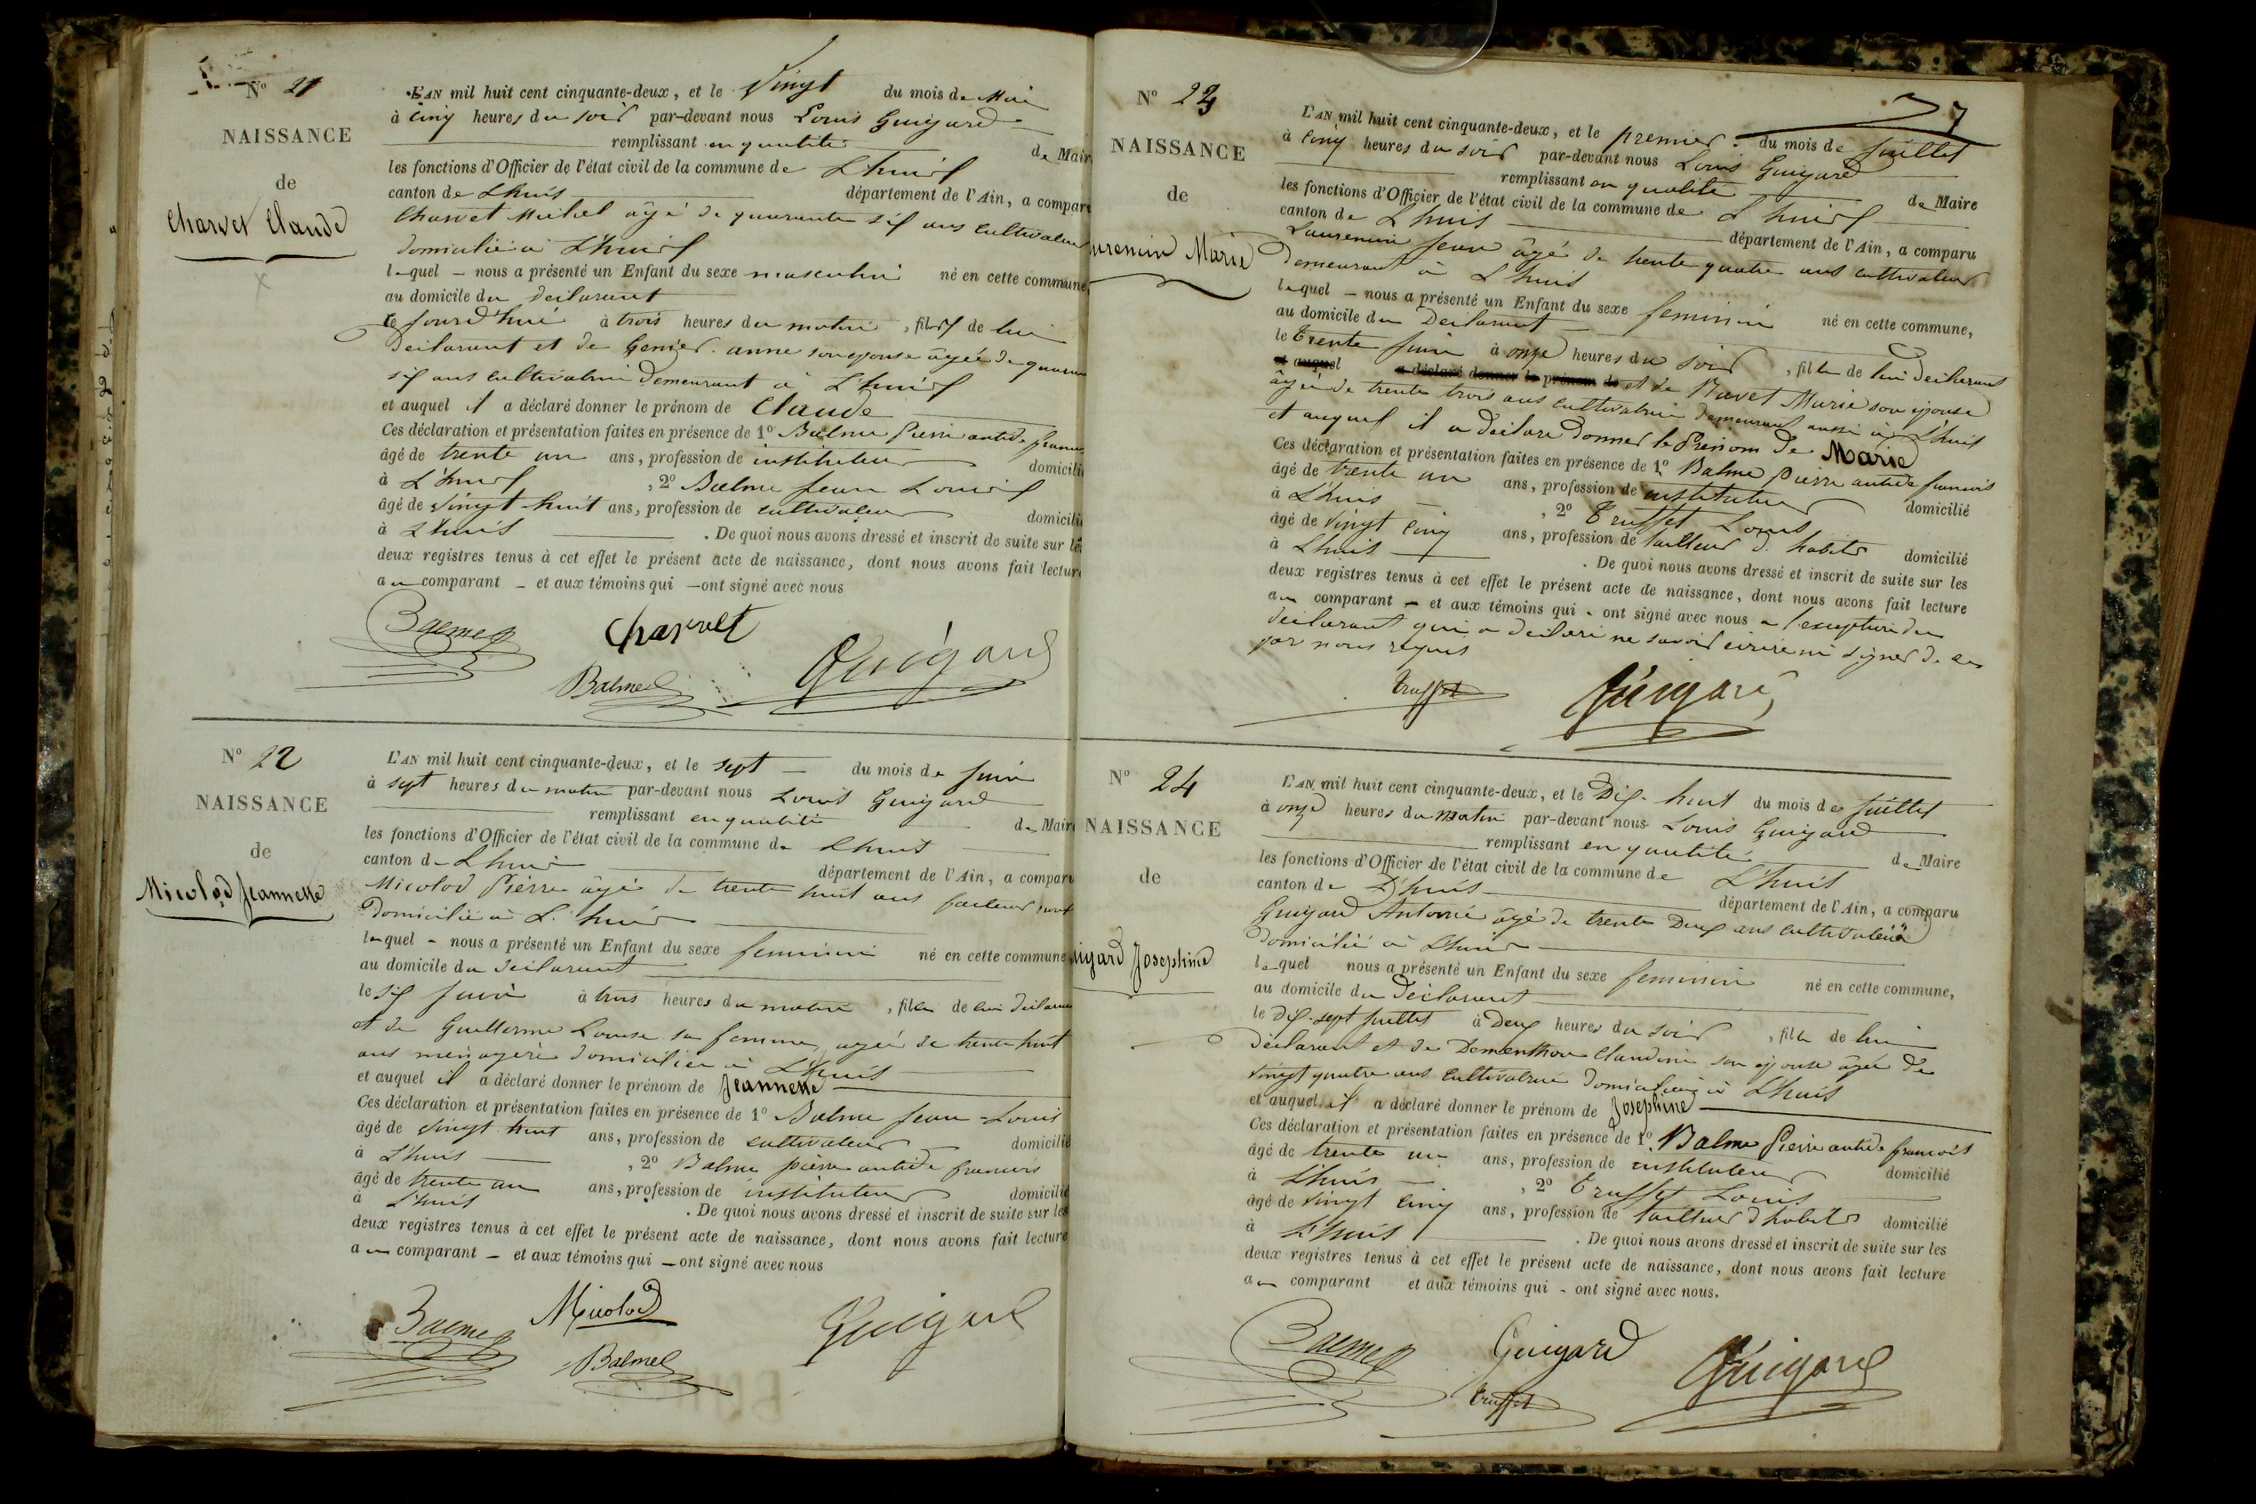 N° 21
NAISSANCE
de
Charvet Claude
L'AN mil huit cent cinquante-deux, et le Vingt du mois de Mai
à cinq heures du soir par-devant nous Louis Guigard
remplissant en qualité de Mair
les fonctions d'Officier de l'état civil de la commune de Lhuis
canton de Lhuis département de l'Ain, a compar
Charvet Michel âgé de quarante six ans cultivateur
domicilié à Lhuis
lequel – nous a présenté un Enfant du sexe masculin né en cette commune,
au domicile du déclarant
ce jourd'hui à trois heures du matin, fils de lui
Déclarant et de Genier anne son épouse âgée de quaran
six ans cultivatrice demeurant à Lhuis
et auquel il a déclaré donner le prénom de Claude
Ces déclaration et présentation faites en présence de 1° Balme Pierre antide
âgé de trente un ans, profession de instituteur domicili
à Lhuis, 2° Balme Jean Louis
âgé de vingt-huit ans, profession de cultivateur domicili
à Lhuis. De quoi nous avons dressé et inscrit de suite sur les
deux registres tenus à cet effet le présent acte de naissance, dont nous avons fait lecture
au comparant – et aux témoins qui – ont signé avec nous
Balme Charvet
Balme Guigard
N° 22
NAISSANCE
de
Micolod Jeannette
L'AN mil huit cent cinquante-deux, et le sept du mois de juin
à sept heures du matin par-devant nous Louis Guigard
remplissant en qualité de Mair
les fonctions d'Officier de l'état civil de la commune de Lhuis
canton de Lhuis département de l'Ain, a compar
Micolod Pierre âgé de trente huit ans facteur
domicilié à Lhuis
lequel – nous a présenté un Enfant du sexe féminin né en cette commune
au domicile du déclarant
le six juin à trois heures du matin, fille de lui déclarant
et de Guillerme Louise sa femme, âgée de trente huit
ans ménagère domiciliée à Lhuis
et auquel il a déclaré donner le prénom de Jeannette
Ces déclaration et présentation faites en présence de 1° Balme Jean-Louis
âgé de vingt huit ans, profession de cultivateur domicilié
à Lhuis, 2° Balme pierre antide francois
âgé de trente un ans, profession de instituteur domicilié
à Lhuis. De quoi nous avons dressé et inscrit de suite sur les
deux registres tenus à cet effet le présent acte de naissance, dont nous avons fait lecture
au comparant – et aux témoins qui – ont signé avec nous
Balme Micolod Guigard
Balme
N° 23
NAISSANCE
de
urenin Marie
L'AN mil huit cent cinquante-deux, et le premier du mois de juillet
à cinq heures du soir par-devant nous Louis Guigard
remplissant en qualité de Maire
les fonctions d'Officier de l'état civil de la commune de Lhuis
canton de Lhuis département de l'Ain, a comparu
Laurenin Jean âgé de trente quatre ans cultivateur
Demeurant à Lhuis
lequel – nous a présenté un Enfant du sexe féminin né en cette commune,
au domicile du Déclarant
le trente juin à onze heures du soir, fille de lui déclarant
et auquel a déclaré donner le prénom de et de Ravet Marie son épouse
âgée de trente trois ans cultivatrice demeurant aussi à Lhuis
et auquel il a déclaré donner le Prénom de Marie
Ces déclaration et présentation faites en présence de 1° Balme Pierre antide francois
âgé de trente un ans, profession de instituteur domicilié
à Lhuis, 2° Truffet Louis
âgé de vingt cinq ans, profession de tailleur d'habits domicilié
à Lhuis. De quoi nous avons dressé et inscrit de suite sur les
deux registres tenus à cet effet le présent acte de naissance, dont nous avons fait lecture
au comparant – et aux témoins qui – ont signé avec nous a l'exception du
déclarant qui a déclaré ne savoir écrire ni signer de ce
par nous requis
Truffet Guigard
N° 24
NAISSANCE
de
uigard Josephine
L'AN mil huit cent cinquante-deux, et le Dix-huit du mois de juillet
à onze heures du matin par-devant nous Louis Guigard
remplissant en qualité de Maire
les fonctions d'Officier de l'état civil de la commune de Lhuis
canton de Lhuis département de l'Ain, a comparu
Guigard Antoine âgé de trente Deux ans cultivateur
domicilié à Lhuis
lequel nous a présenté un Enfant du sexe féminin né en cette commune,
au domicile du Déclarant
le dix-sept juillet à Deux heures du soir, fille de lui
déclarant et de Dementhon Claudine son épouse âgée de
vingt quatre ans cultivatrice domiciliée à Lhuis
et auquel il a déclaré donner le prénom de Josephine
Ces déclaration et présentation faites en présence de 1° Balme Pierre antide francois
âgé de trente un ans, profession de instituteur domicilié
à Lhuis, 2° Truffet Louis
âgé de vingt cinq ans, profession de tailleur d'habits domicilié
à Lhuis. De quoi nous avons dressé et inscrit de suite sur les
deux registres tenus à cet effet le présent acte de naissance, dont nous avons fait lecture
au comparant et aux témoins qui – ont signé avec nous.
Balme Guigard Guigard
Truffet